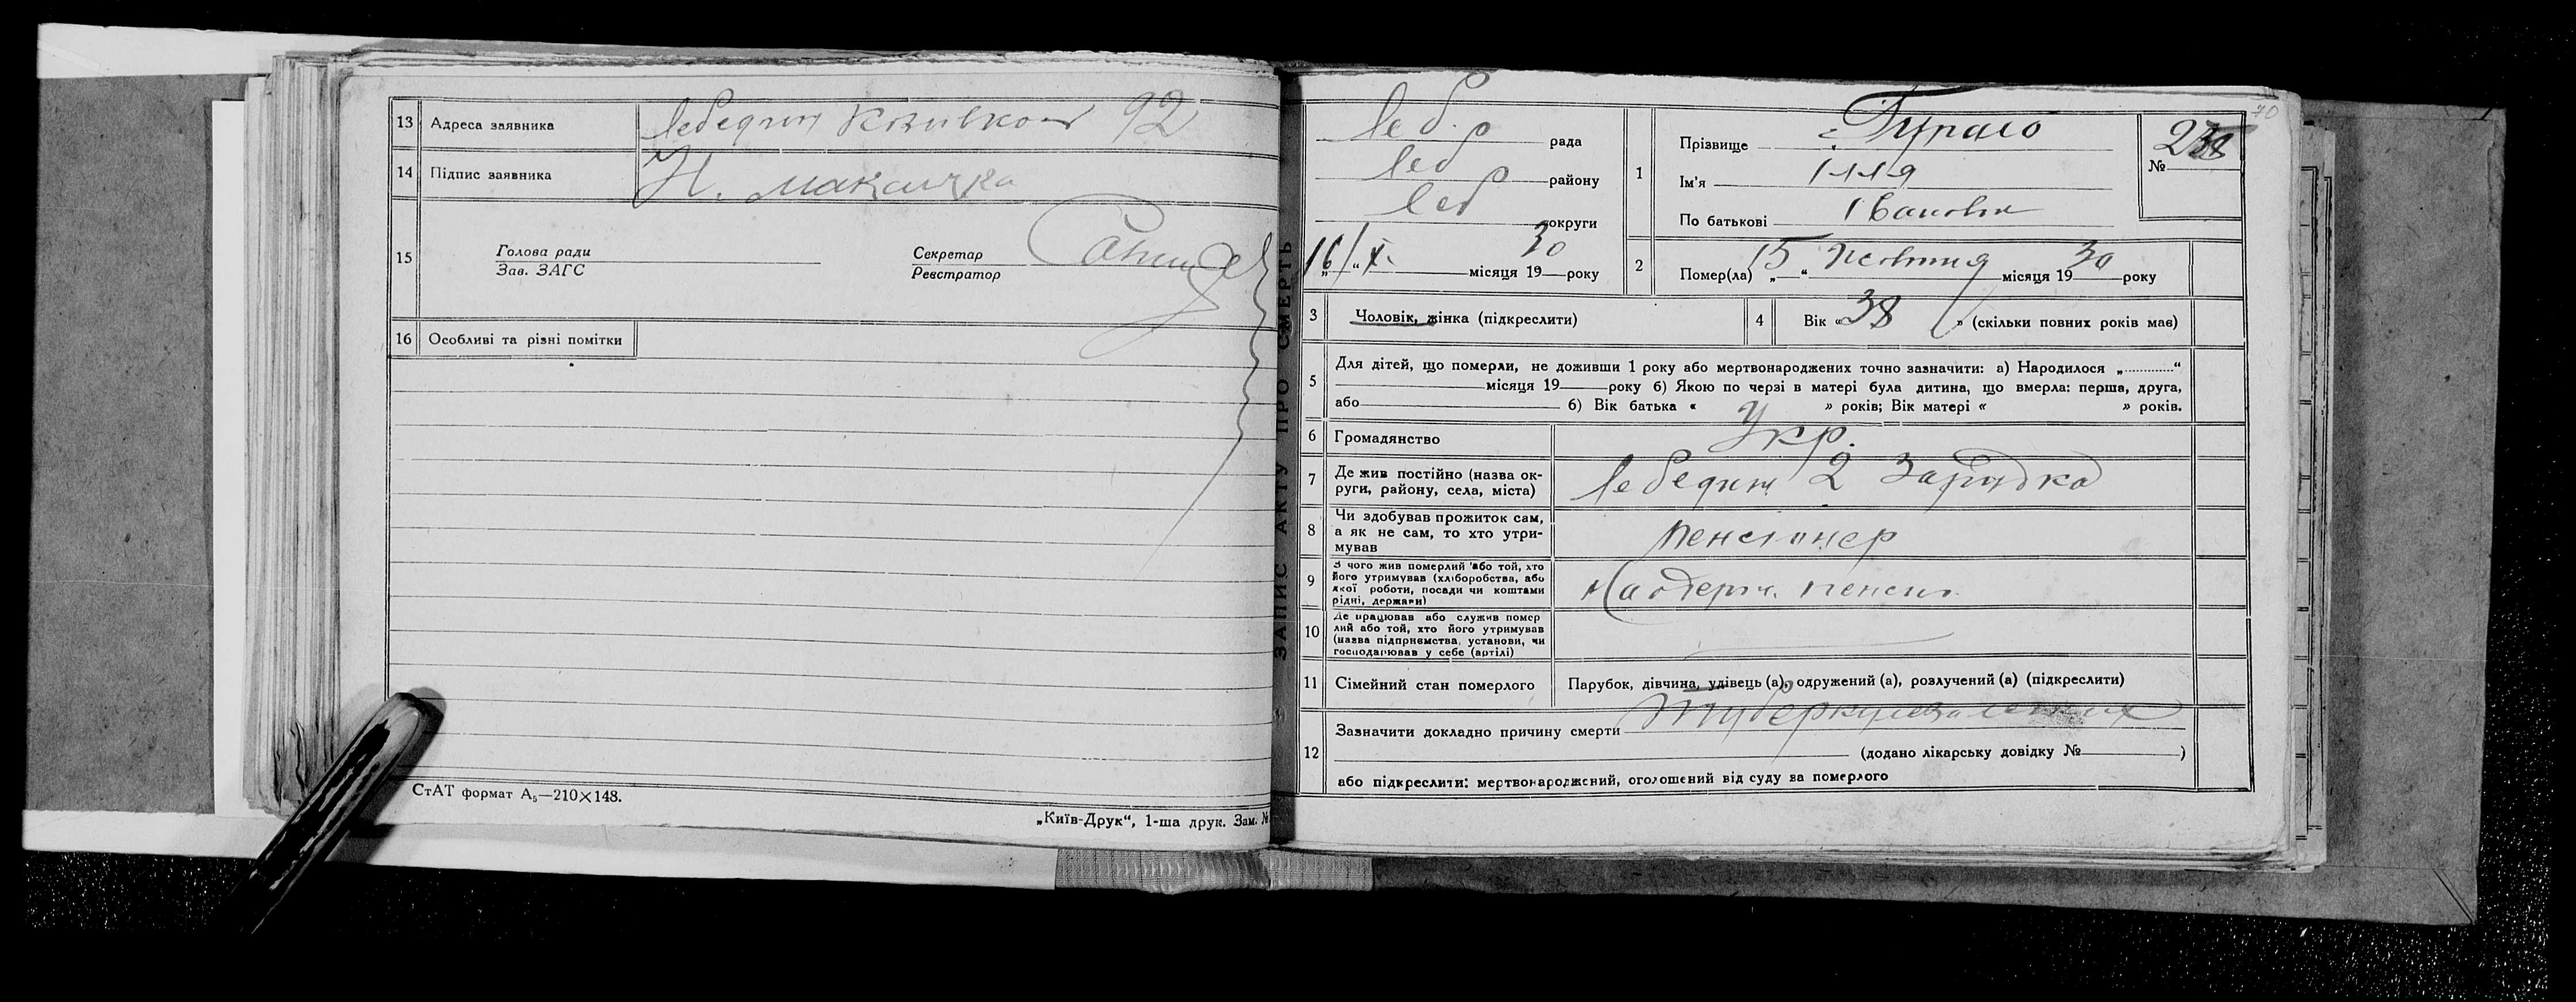 13 Адреса заявника Лебедин 92
14 Підпис заявника Н. Макаичка
15 Голова ради
Зав. ЗАГС
Секретар
Реєстратор
16 Особливі та різні помітки
СтАТ формат А₅—210×148.
„Київ-Друк“, 1-ша друк. Зам. №
ЗАПИС АКТУ ПРО СМЕРТЬ
70
Леб. р рада
Леб р району
Леб округи
„16/“ X. місяця 1930 року
1 Прізвище
Ім'я Ілля
По батькові Іванович
№
2 Помер(ла) „15“ жовтня місяця 1930 року
3 Чоловік, жінка (підкреслити)
4 Вік «38» (скільки повних років має)
5 Для дітей, що померли, не доживши 1 року або мертвонароджених точно зазначити: а) Народилося „............“
місяця 19 року б) Якою по черзі в матері була дитина, що вмерла: перша, друга,
або б) Вік батька « » років; Вік матері « » років.
6 Громадянство Укр.
7 Де жив постійно (назва ок-
руги, району, села, міста) Лебедин 2
8 Чи здобував прожиток сам,
а як не сам, то хто утри-
мував пенсіонер
9 З чого жив померлий або той, хто
його утримував (хліборобства, або
якої роботи, посади чи коштами
рідні, держави) пенсії
10 Де працював або служив помер
лий або той, хто його утримував
(назва підприємства, установи, чи
господарював у себе (артілі)
11 Сімейний стан померлого Парубок, дівчина, удівець (а), одружений (а), розлучений (а) (підкреслити)
12 Зазначити докладно причину смерти туберкульоз легких
(додано лікарську довідку № )
або підкреслити: мертвонароджений, оголошений від суду за померлого